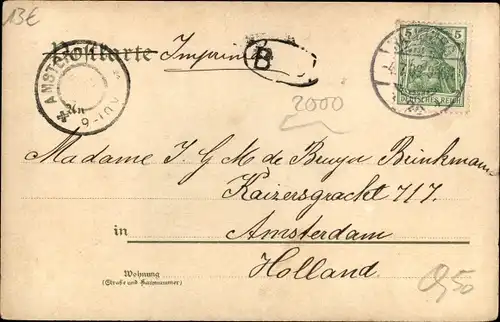 13€
Postkarte Imprimé
AMSTERDAM
B
5 5
DEUTSCHES REICH
2000
Madame J G M de Bruyn Brinkman
Kaizersgracht 717.
in Amsterdam
Holland.
Wohnung
(Straße und Hausnummer)
0,50